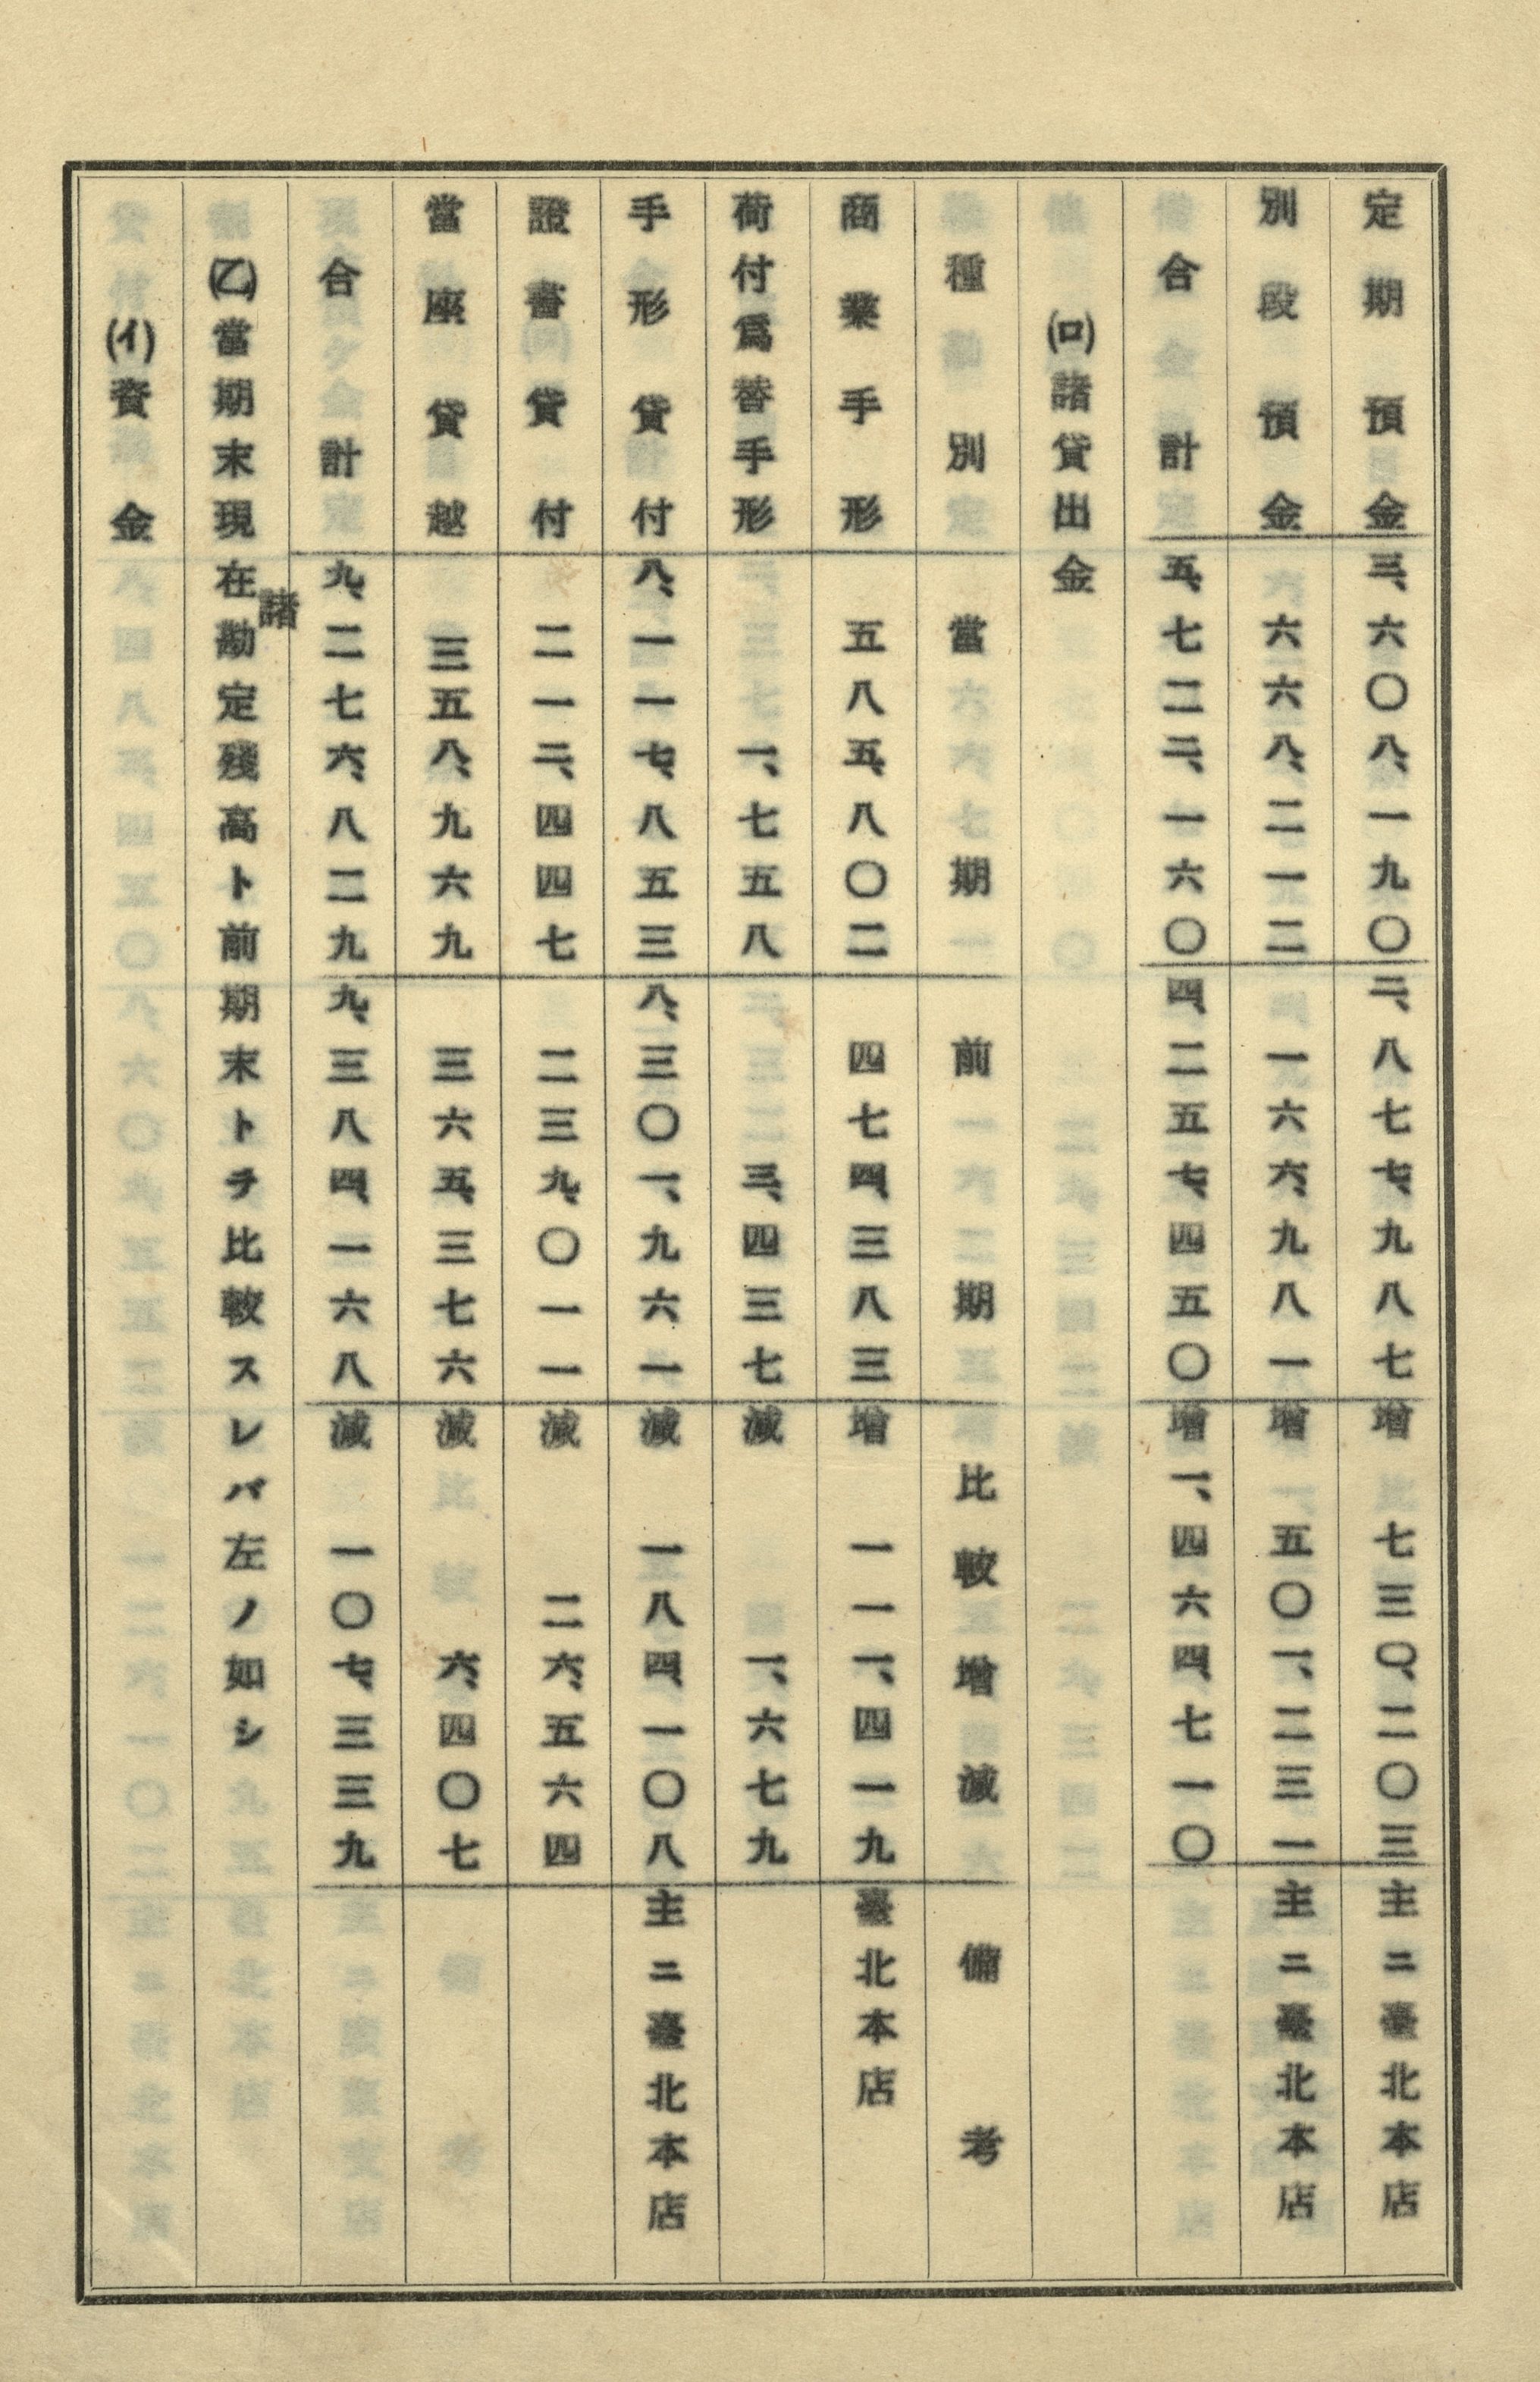 定期預金 三、六〇八、一九〇 二、八七七、九八七 増 七三〇、二〇三 主ニ臺北本店
別段預金 六六八、二一二 一六六、九八一 増 五〇一、二三一 主ニ臺北本店
合計 五、七二二、一六〇 四、二五七、四五〇 増 一、四六四、七一〇
(ロ)諸貸出金
種別 當期 前期 比較増減 備考
商業手形 五八五、八〇二 四七四、三八三 増 一一一、四一九 臺北本店
荷付爲替手形 一、七五八 三、四三七 減 一、六七九
手形貸付 八、一一七、八五三 八、三〇一、九六一 減 一八四、一〇八 主ニ臺北本店
證書貸付 二一二、四四七 二三九、〇一一 減 二六、五六四
當座貸越 三五八、九六九 三六五、三七六 減 六、四〇七
合計 九、二七六、八二九 九、三八四、一六八 減 一〇七、三三九
(乙)當期末現在諸勘定殘高ト前期末トヲ比較スレバ左ノ如シ
(イ)資金